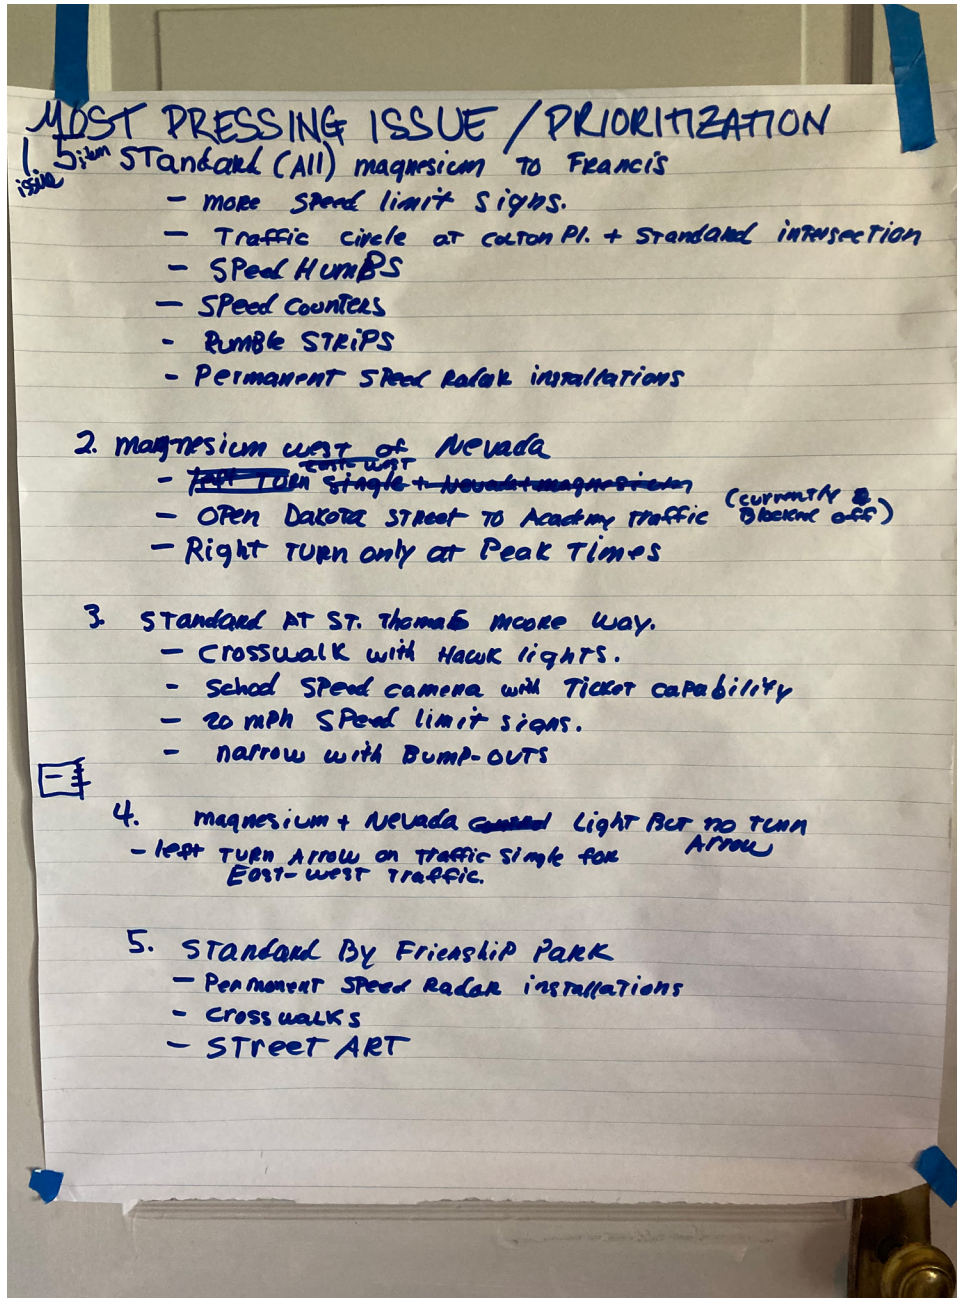 MOST PRESSING ISSUE / PRIORITIZATION
1. 5 item Standard (All) magnesium to Francis
issue
- more speed limit signs.
- Traffic circle at Colton Pl. + Standard intersection
- Speed Humps
- Speed counters
- Rumble Strips
- Permanent Speed Radar installations
2. magnesium west of Nevada
east-west
- left Turn single + Nevada + magnesium
- Open Dakota Street to Academy traffic (currently
Blocked off)
- Right Turn only at Peak Times
3. Standard AT ST. Thomas Moore Way.
- Crosswalk with Hawk lights.
- School Speed camera with Ticket capability
- 20 mph Speed limit signs.
- narrow with Bump-outs
4. magnesium + Nevada Light But no Turn
Arrow
- left Turn Arrow on Traffic Single for
East-west Traffic.
5. Standard By Frienship Park
- Permonent Speed Radar installations
- Crosswalks
- Street ART